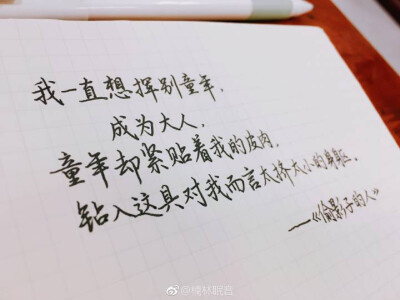 我一直想挥别童年，
成为大人，
童年却紧贴着我的皮肉，
钻入这具对我而言太挤太小的身躯。
——《偷影子的人》